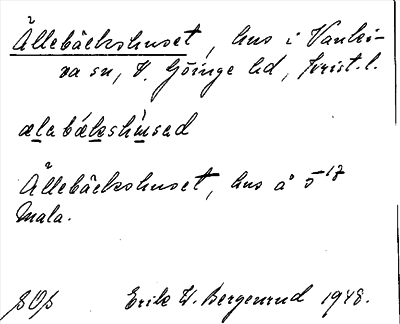 Ällebäckshuset, hus i Vanki-
va sn, V. Göinge hd, Krist. l.
ælabækshusad
Ällebäckshuset, hus å 5¹⁷
Mala.
SOS Erik W. Bergenrud 1948.